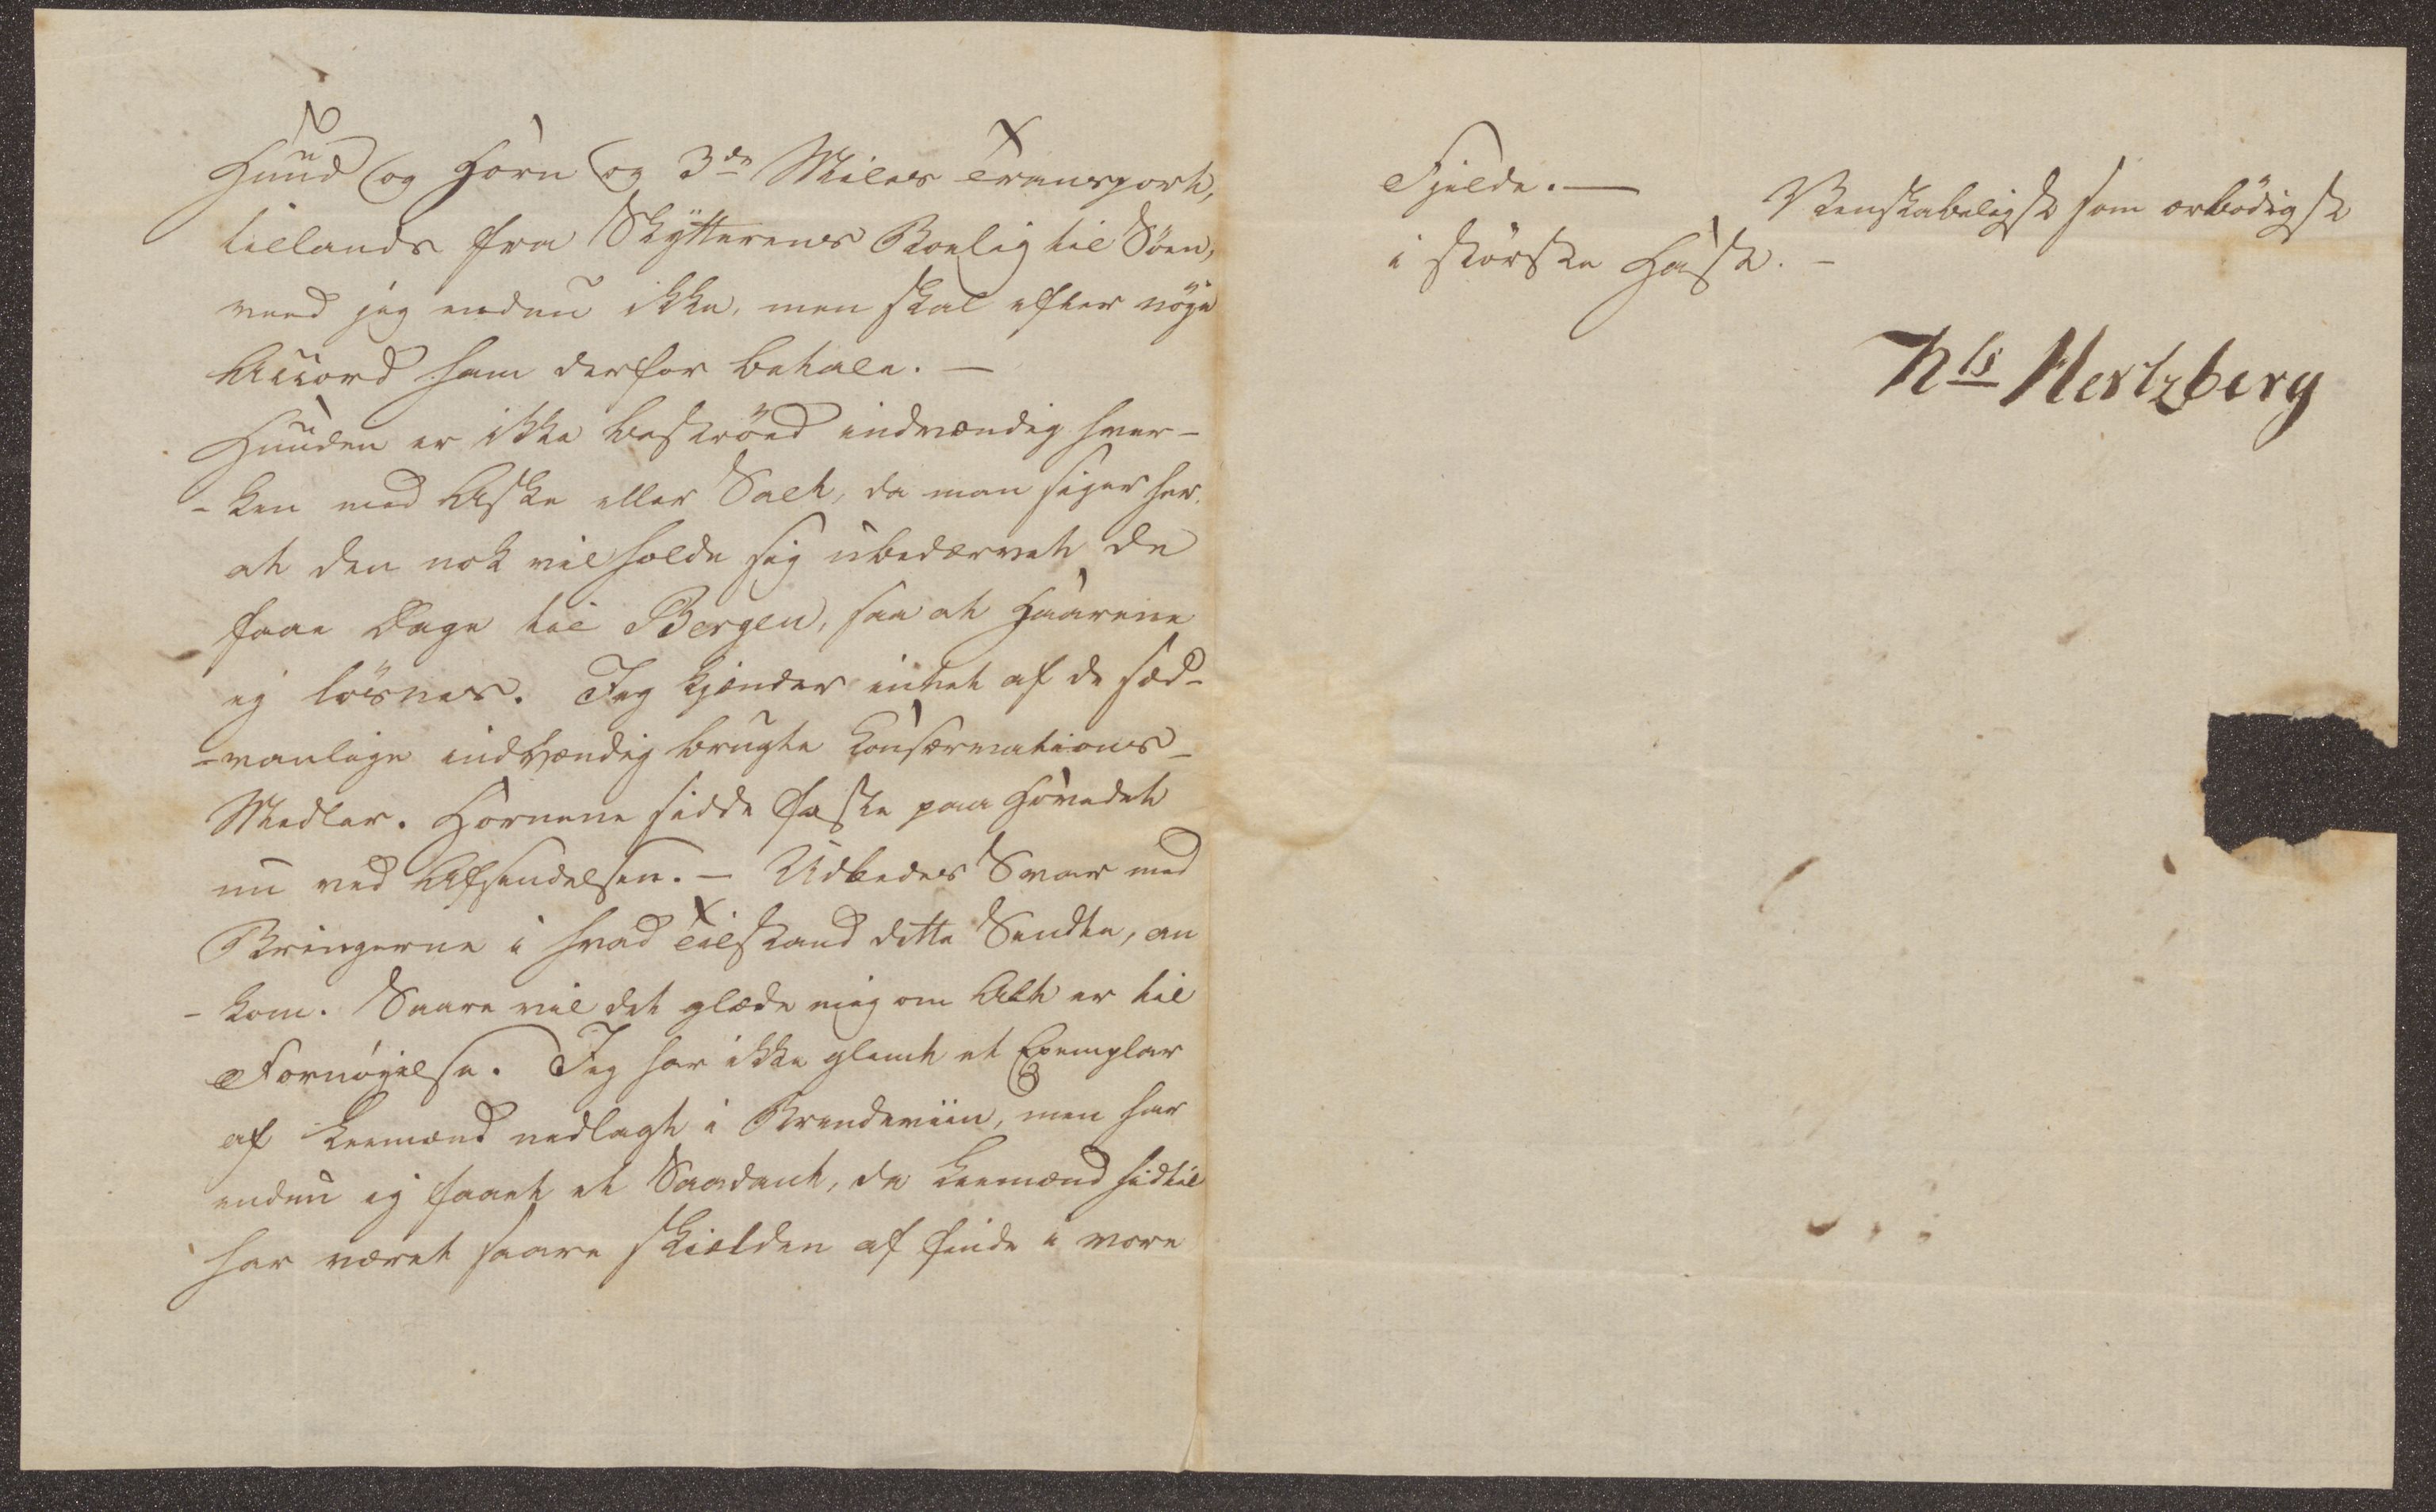 Huud og Horn og 3de Miles Transport,
tillands fra Skÿtterens Boelig til Söen,
veed jeg endnu ikke, men skal efter nöye
Accord ham derfor betale. —
Huuden er ikke beströed indvændig hver-
-ken med Aske eller Salt, da man siger her,
at den nok vil holde sig ubedærvet de
faae Dage til Bergen, saa at Haarene
ej lösnes. Jeg kjender intet af de sæd-
-vanlige indvændig brugte Conservations-
Medler. Hornene sidde faste paa Hovedet
nu ved Afsendelsen. — Udbedes Svar med
Bringerne i hvad Tilstand dette Sendte, an
-kom. Saare vil det glæde mig om Alt er til
Fornöjelse. Jeg har ikke glemt et Exemplar
af Leemænd nedlagt i Brændeviin, men har
endnu ej faaet et Saadant, da Leemænd hidtil
har været saare skielden at finde i vore
Fjelde. —
Venskabeligst som ærbödigst
i störste Hast. —
Nls Hertzberg